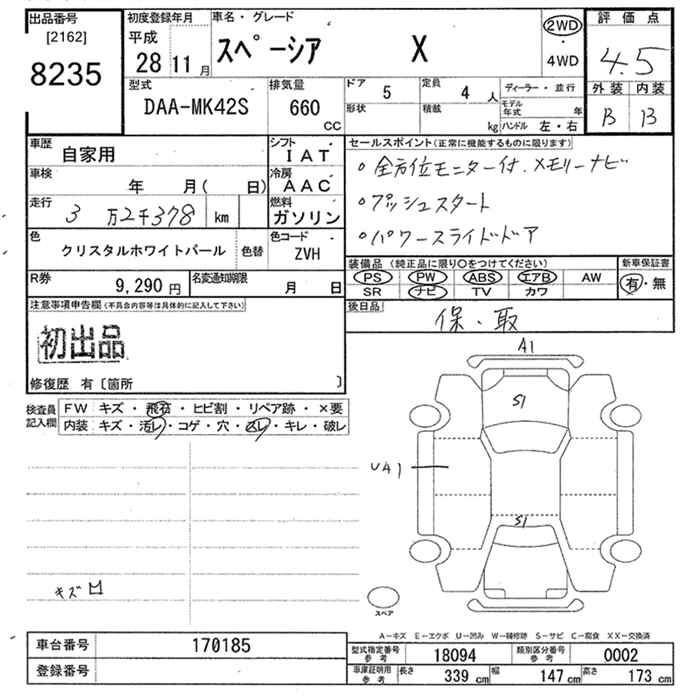 出品番号 [2162] 8235
初度登録年月 平成 28 11 月
車名・グレード スペーシア X
2WD ・ 4WD
評価点 4.5
外装 内装
B B
型式 DAA-MK42S
排気量 660 CC
ドア 5
形状
定員 4 人
積載 kg
ディーラー・並行
モデル年式 年
ハンドル 左・右
車歴 自家用
車検 年 月( 日)
走行 3 万2千378 km
シフト IAT
冷房 AAC
燃料 ガソリン
色 クリスタルホワイトパール 色替
色コード ZVH
R券 9,290 円
名変通知期限 月 日
セールスポイント(正常に機能するものに限ります)
○ 全方位モニター付.メモリーナビ
○ プッシュスタート
○ パワースライドドア
装備品(純正品に限り○をつけてください)
PS PW ABS エアB AW
SR ナビ TV カワ
新車保証書
有・無
後日品 保・取
注意事項申告欄(不具合内容等は具体的に記入して下さい)
初出品
修復歴 有〔箇所 〕
検査員記入欄
FW キズ・飛石・ヒビ割・リペア跡・×要
内装 キズ・汚レ・コゲ・穴・スレ・キレ・破レ
A1
S1
UA1
S1
キズ凹
スペア
A−キズ E−エクボ U−凹み W−補修跡 S−サビ C−腐食 XX−交換済
車台番号 170185
登録番号
型式指定番号参考 18094
類別区分番号参考 0002
車庫証明用参考 長さ 339 cm 幅 147 cm 高さ 173 cm